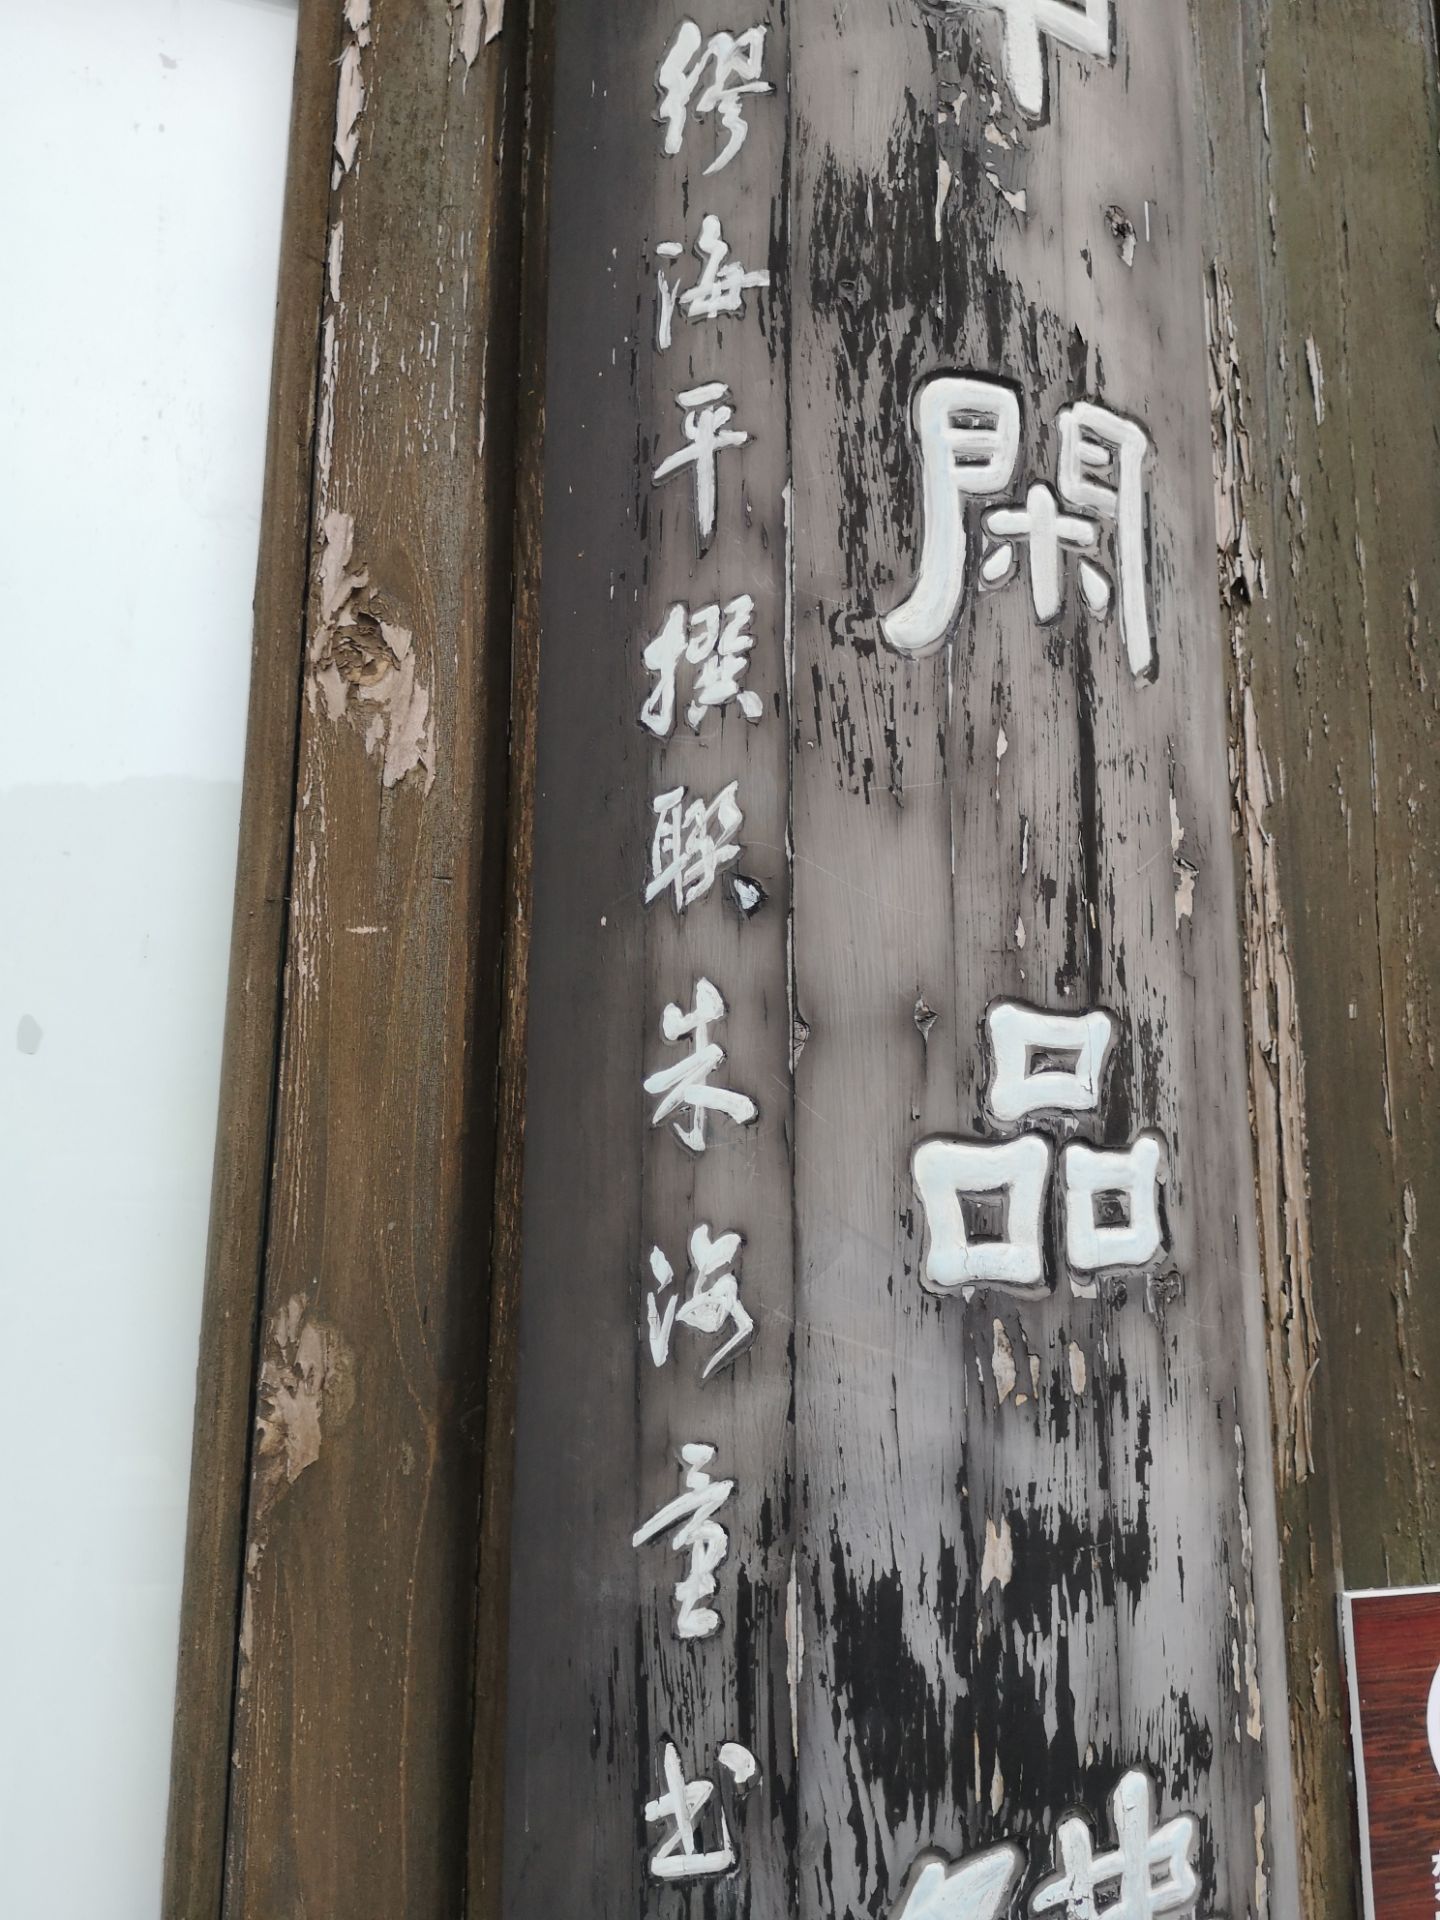 閑品
缪海平撰聯朱海童书